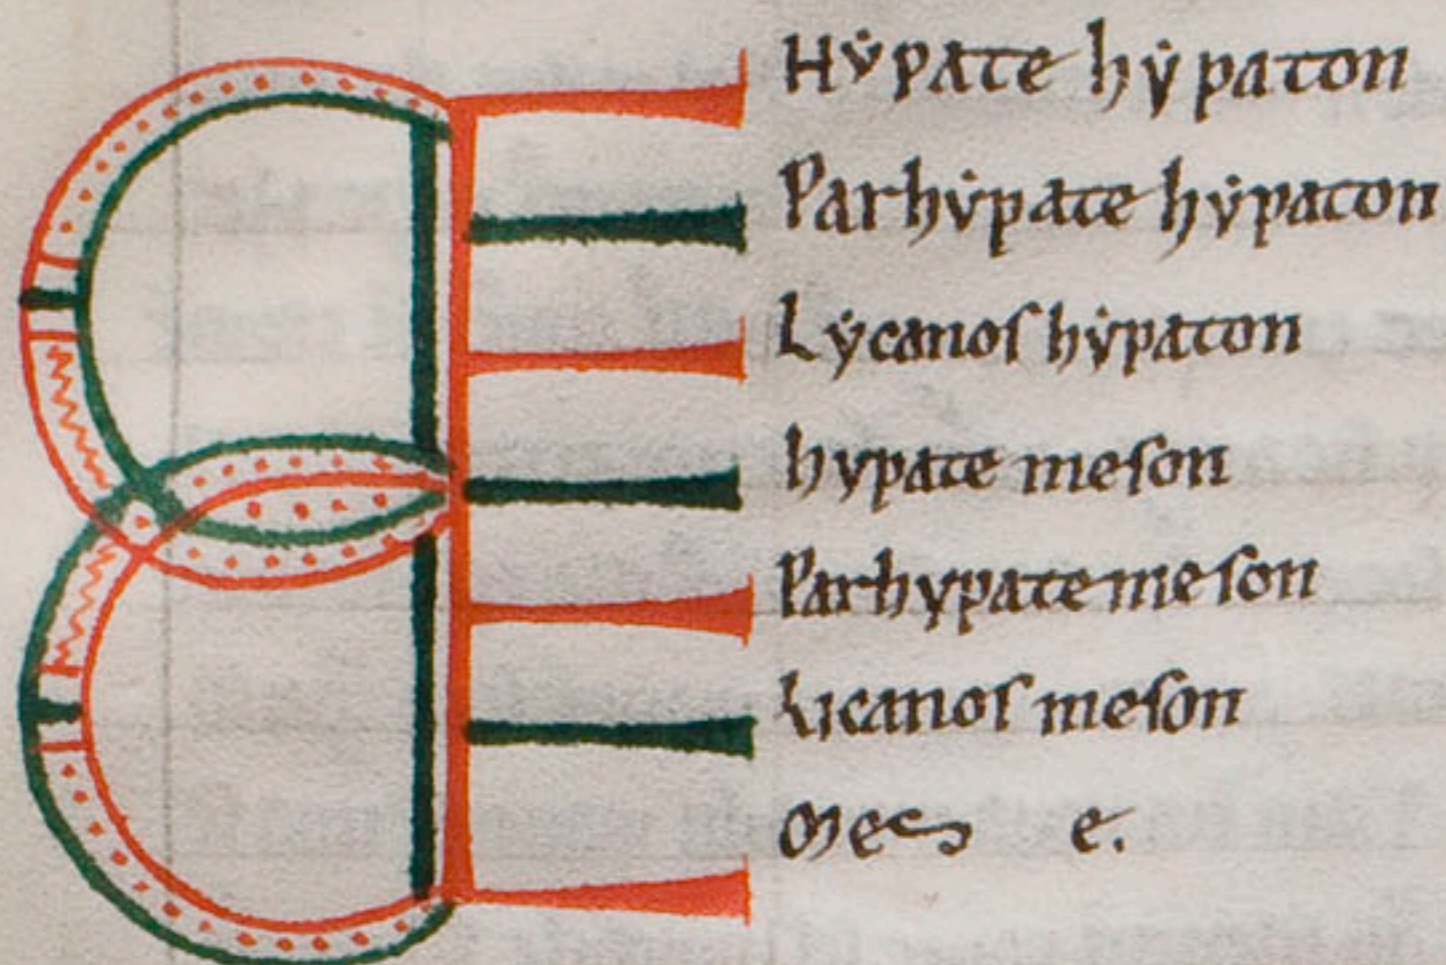 Hẏpate hẏpaton
Parhẏpate hẏpaton
Lẏcanoſ hẏpaton
hypate meſon
Parhypate meſon
Licanoſ meſon
Meſ e.